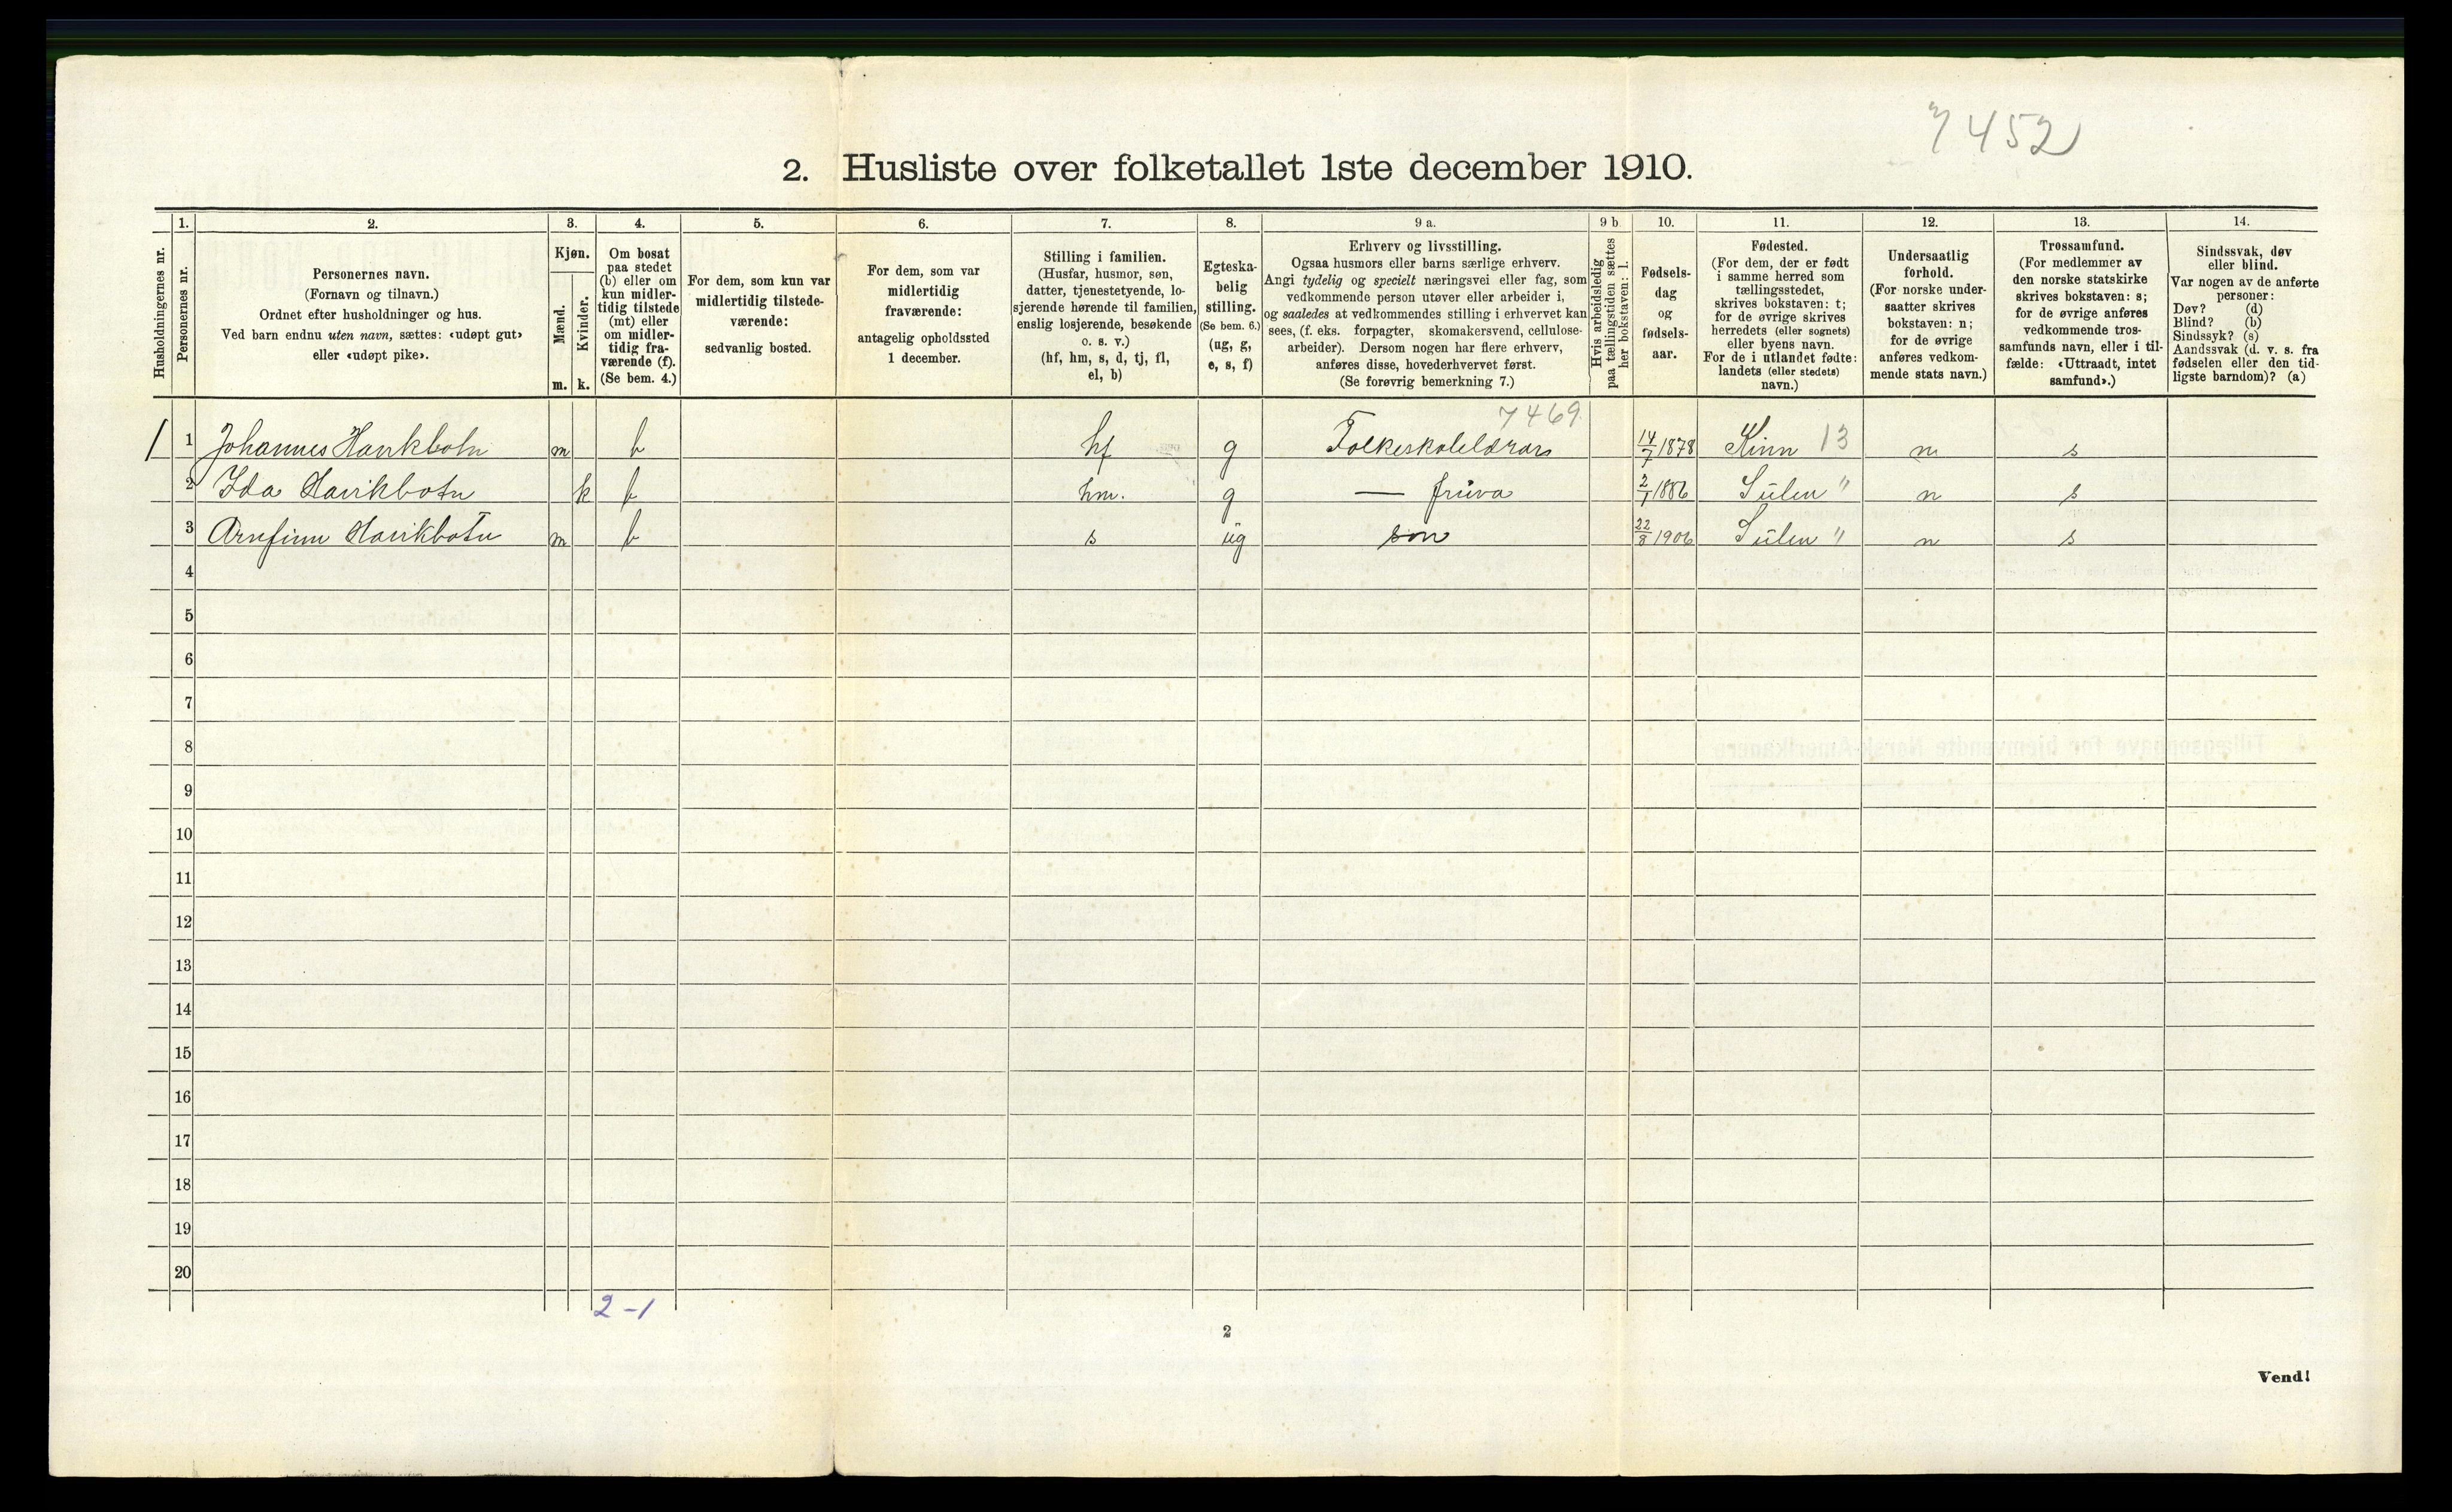 7452
2. Husliste over folketallet 1ste december 1910.
Husholdningernes nr.
1.
Personernes nr.
2.
Personernes navn.
(Fornavn og tilnavn.)
Ordnet efter husholdninger og hus.
Ved barn endnu uten navn, sættes: «udøpt gut»
eller «udøpt pike».
3.
Kjøn.
Mænd.
Kvinder.
m. k.
4.
Om bosat
paa stedet
(b) eller om
kun midler-
tidig tilstede
(mt) eller
om midler-
tidig fra-
værende (f).
(Se bem. 4.)
5.
For dem, som kun var
midlertidig tilstede-
værende:
sedvanlig bosted.
6.
For dem, som var
midlertidig
fraværende:
antagelig opholdssted
1 december.
7.
Stilling i familien.
(Husfar, husmor, søn,
datter, tjenestetyende, lo-
sjerende hørende til familien,
enslig losjerende, besøkende
o. s. v.)
(hf, hm, s, d, tj, fl,
el, b)
8.
Egteska-
belig
stilling.
(Se bem. 6.)
(ug, g,
e, s, f)
9 a.
Erhverv og livsstilling.
Ogsaa husmors eller barns særlige erhverv.
Angi tydelig og specielt næringsvei eller fag, som
vedkommende person utøver eller arbeider i,
og saaledes at vedkommendes stilling i erhvervet kan
sees, (f. eks. forpagter, skomakersvend, cellulose-
arbeider). Dersom nogen har flere erhverv,
anføres disse, hovederhvervet først.
(Se forøvrig bemerkning 7.)
9 b.
Hvis arbeidsledig
paa tællingstiden sættes
her bokstaven: l.
10.
Fødsels-
dag
og
fødsels-
aar.
11.
Fødested.
(For dem, der er født
i samme herred som
tællingsstedet,
skrives bokstaven: t;
for de øvrige skrives
herredets (eller sognets)
eller byens navn.
For de i utlandet fødte:
landets (eller stedets)
navn.)
12.
Undersaatlig
forhold.
(For norske under-
saatter skrives
bokstaven: n;
for de øvrige
anføres vedkom-
mende stats navn.)
13.
Trossamfund.
(For medlemmer av
den norske statskirke
skrives bokstaven: s;
for de øvrige anføres
vedkommende tros-
samfunds navn, eller i til-
fælde: «Uttraadt, intet
samfund».)
14.
Sindssvak, døv
eller blind.
Var nogen av de anførte
personer:
Døv? (d)
Blind? (b)
Sindssyk? (s)
Aandssvak (d. v. s. fra
fødselen eller den tid-
ligste barndom)? (a)
7469
1 1 Johannes Havikbotn m b hf g Folkeskolelærar 14/7 1878 Kinn 13 n s
2 Ida Havikbotn k b hm. g — frúva 2/1 1886 Súlen " n s
3 Arnfinn Havikbotn m b s úg son 22/8 1906 Súlen " n s
4
5
6
7
8
9
10
11
12
13
14
15
16
17
18
19
20
2-1
2
Vend!